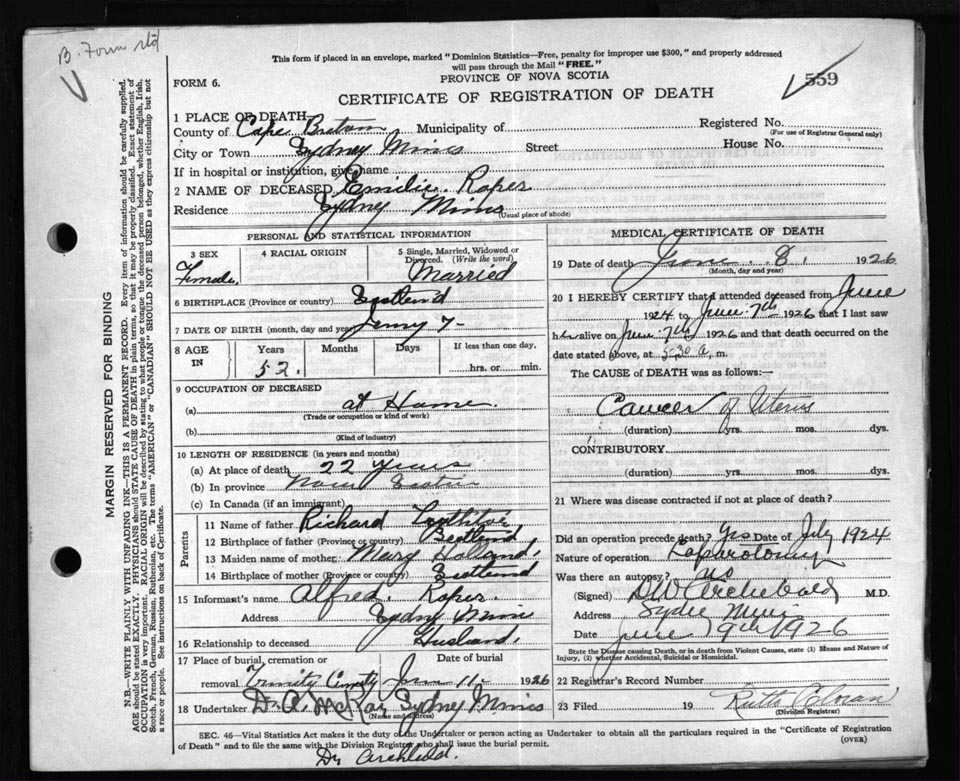 B. Form
This form if placed in an envelope, marked "Dominion Statistics—Free, penalty for improper use $300," and properly addressed
will pass through the Mail "FREE."
PROVINCE OF NOVA SCOTIA
FORM 6.
559
CERTIFICATE OF REGISTRATION OF DEATH
1 PLACE OF DEATH
County of Cape Breton Municipality of
Registered No.
(For use of Registrar General only)
City or Town Sydney Mines Street House No.
If in hospital or institution, give name
2 NAME OF DECEASED Emilie Roper
Residence Sydney Mines
(Usual place of abode)
PERSONAL AND STATISTICAL INFORMATION
3 SEX Female
4 RACIAL ORIGIN
5 Single, Married, Widowed or
Divorced. (Write the word)
Married
6 BIRTHPLACE (Province or country) Scotland
7 DATE OF BIRTH (month, day and year) 7-
8 AGE IN Years Months Days If less than one day,
52. hrs. or min.
9 OCCUPATION OF DECEASED
(a) at Home.
(Trade or occupation or kind of work)
(b)
(Kind of industry)
10 LENGTH OF RESIDENCE (in years and months)
(a) At place of death 22 years
(b) In province Nova Scotia
(c) In Canada (if an immigrant)
Parents
11 Name of father Richard
12 Birthplace of father (Province or country) Scotland
13 Maiden name of mother Mary Holland
14 Birthplace of mother (Province or country) Scotland
15 Informant's name Alfred Roper
Address Sydney Mines
16 Relationship to deceased Husband
17 Place of burial, cremation or Date of burial
removal Trinity Jun 11- 1926
18 Undertaker D. A. McKay Sydney Mines
(Name and address)
MEDICAL CERTIFICATE OF DEATH
19 Date of death June 8, 1926
(Month, day and year)
20 I HEREBY CERTIFY that I attended deceased from June
1924 to June 7th 1926 that I last saw
her alive on June 7th 1926 and that death occurred on
date stated above, at 5:30 a. m.
The CAUSE of DEATH was as follows:—
Cancer of Uterus
(duration) yrs. mos. dys.
CONTRIBUTORY
(duration) yrs. mos. dys.
21 Where was disease contracted if not at place of death?
Did an operation precede death? Yes Date of July 1924
Nature of operation Laparotomy
Was there an autopsy? no
(Signed) D W Archibald M.D.
Address Sydney Mines
Date June 9th 1926
State the Disease causing Death, or in death from Violent Causes, state (1) Means and Nature of
Injury, (2) whether Accidental, Suicidal or Homicidal.
22 Registrar's Record Number
23 Filed 19 Ruth
(Division Registrar)
SEC. 46—Vital Statistics Act makes it the duty of the Undertaker or person acting as Undertaker to obtain all the particulars required in the "Certificate of Registration
of Death" and to file the same with the Division Registrar who shall issue the burial permit. (OVER)
Dr. Archibald.
MARGIN RESERVED FOR BINDING
N.B.—WRITE PLAINLY WITH UNFADING INK—THIS IS A PERMANENT RECORD. Every item of information should be carefully supplied.
AGE should be stated EXACTLY. PHYSICIANS should STATE CAUSE OF DEATH in plain terms, so that it may be properly classified. Exact statement of
OCCUPATION is very important. RACIAL ORIGIN will be described by stating to what people or tongue the deceased person belonged, whether English, Irish,
Scotch, French, German, Russian, Ruthenian, etc. The terms "AMERICAN" or "CANADIAN" SHOULD NOT BE USED as they express citizenship but not
a race or people. See instructions on back of Certificate.